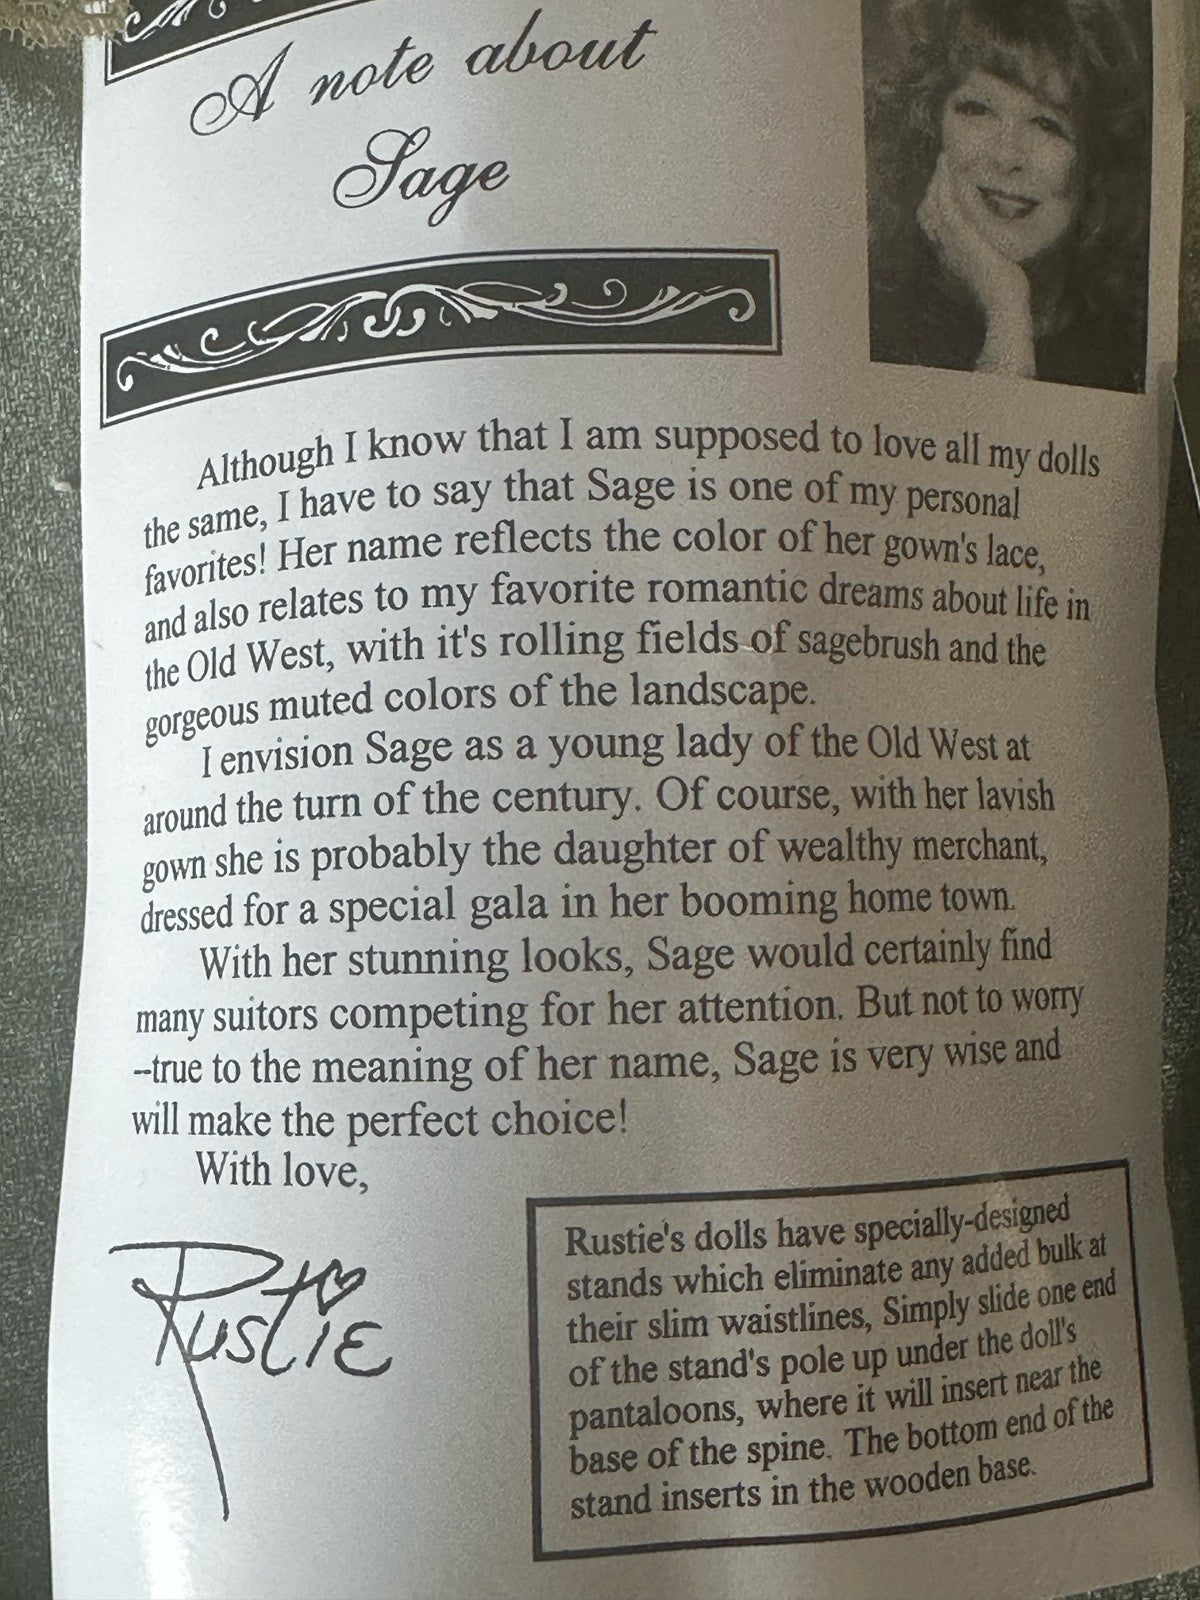 A note about
Sage
Although I know that I am supposed to love all my dolls
the same, I have to say that Sage is one of my personal
favorites! Her name reflects the color of her gown's lace,
and also relates to my favorite romantic dreams about life in
the Old West, with it's rolling fields of sagebrush and the
gorgeous muted colors of the landscape.
I envision Sage as a young lady of the Old West at
around the turn of the century. Of course, with her lavish
gown she is probably the daughter of wealthy merchant,
dressed for a special gala in her booming home town.
With her stunning looks, Sage would certainly find
many suitors competing for her attention. But not to worry
--true to the meaning of her name, Sage is very wise and
will make the perfect choice!
With love,
Rustie
Rustie's dolls have specially-designed
stands which eliminate any added bulk at
their slim waistlines, Simply slide one end
of the stand's pole up under the doll's
pantaloons, where it will insert near the
base of the spine. The bottom end of the
stand inserts in the wooden base.